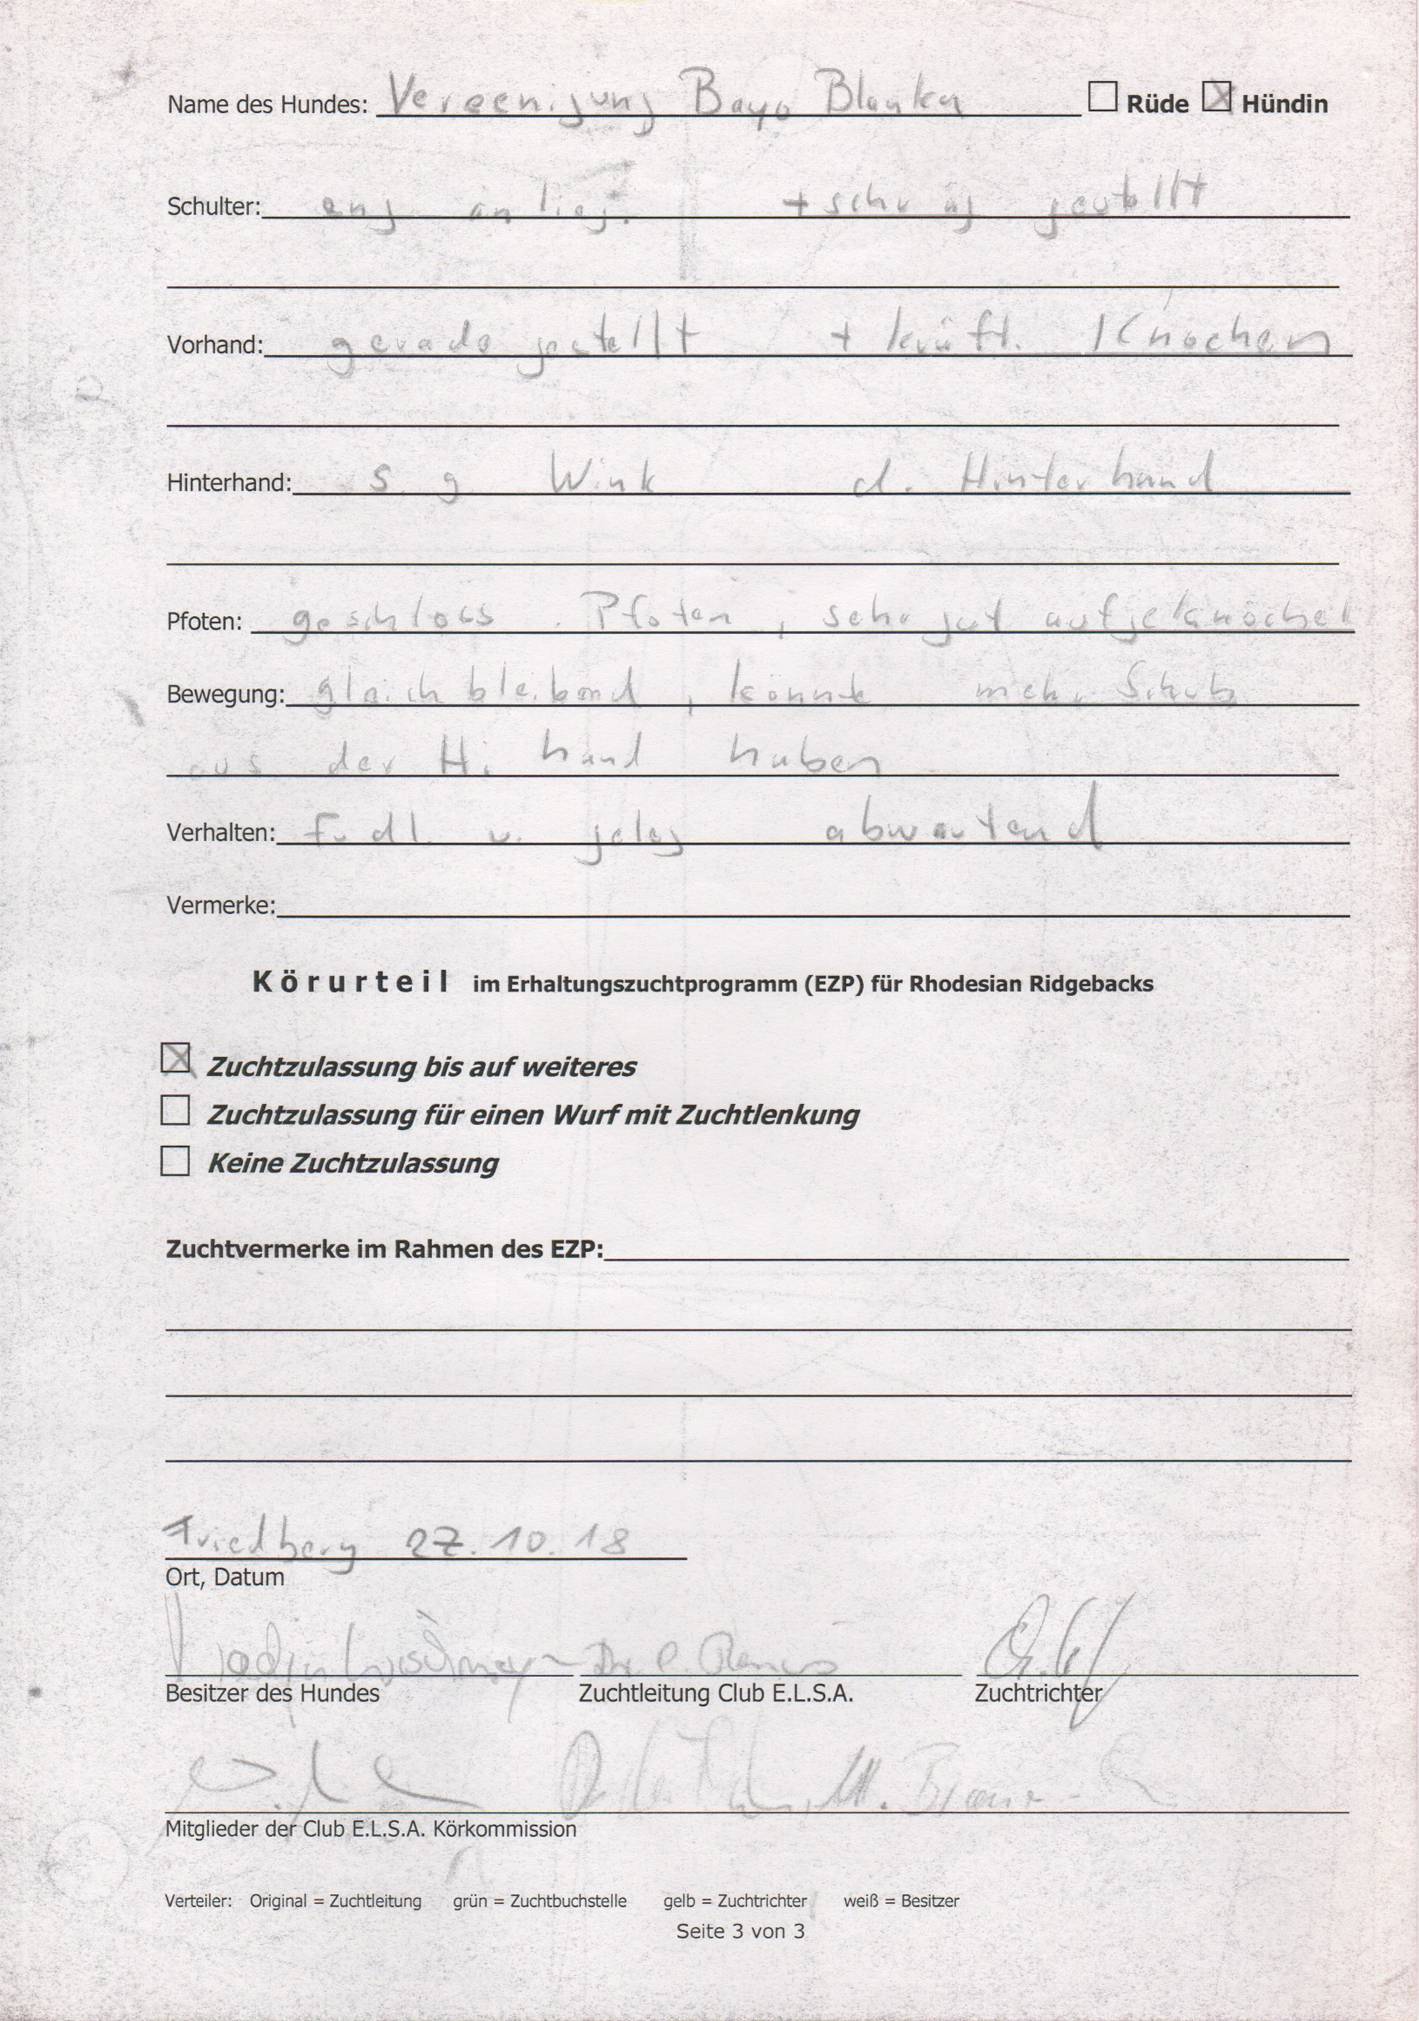 Name des Hundes: Vereenigung Bayo Blanka ☐ Rüde ☒ Hündin
Schulter: eng anlieg. + schräg gestellt
Vorhand: gerade gestellt + kräft. Knochen
Hinterhand: s. g Wink d. Hinterhand
Pfoten: geschloss. Pfoten, sehr gut aufgeknöchelt
Bewegung: gleichbleibend, könnte mehr Schub
aus der Hi. hand haben
Verhalten: frdl. u. abwartend
Vermerke:
Körurteil im Erhaltungszuchtprogramm (EZP) für Rhodesian Ridgebacks
☒ Zuchtzulassung bis auf weiteres
☐ Zuchtzulassung für einen Wurf mit Zuchtlenkung
☐ Keine Zuchtzulassung
Zuchtvermerke im Rahmen des EZP:
Friedberg 27.10.18
Ort, Datum
Besitzer des Hundes Zuchtleitung Club E.L.S.A. Zuchtrichter
Mitglieder der Club E.L.S.A. Körkommission
Verteiler: Original = Zuchtleitung grün = Zuchtbuchstelle gelb = Zuchtrichter weiß = Besitzer
Seite 3 von 3